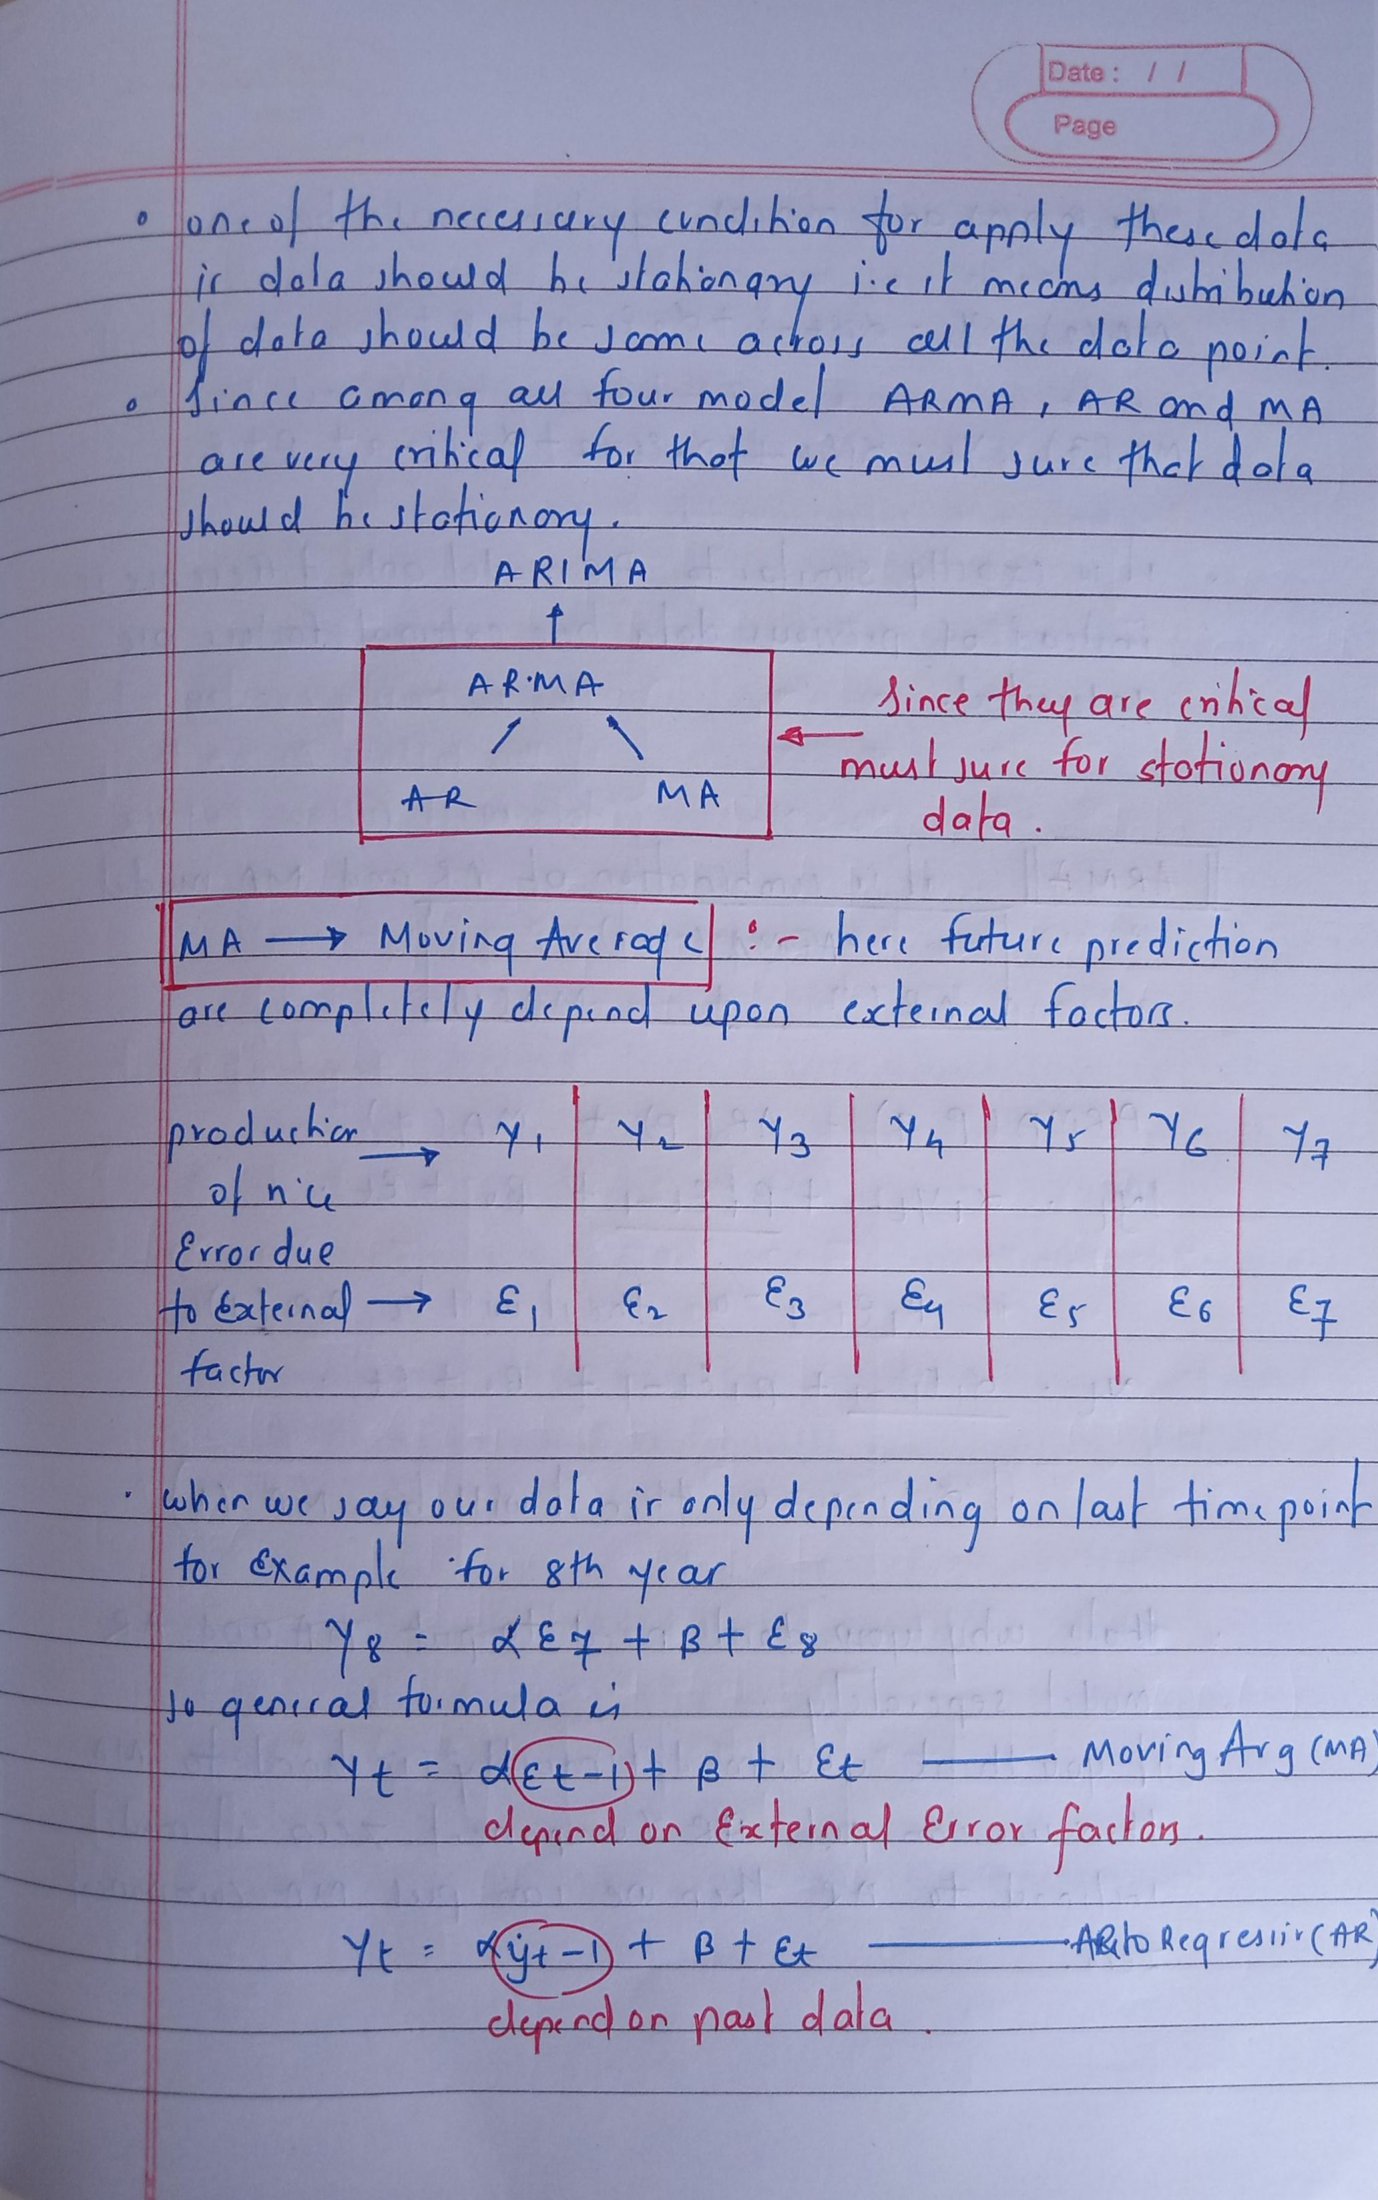 Date : / /
Page
• one of the necessary condition for apply these data
is data should be stationary i.e it means distribution
of data should be same across all the data point.
• Since among all four model ARMA, AR and MA
are very critical for that we must sure that data
should be stationary.
ARIMA
↑
ARMA
AR MA
Since they are critical
must sure for stationary
data.
MA → Moving Average :- here future prediction
are completely depend upon external factors.
production → Y1 Y2 Y3 Y4 Y5 Y6 Y7
of rice
Error due
to External → ε1 ε2 ε3 ε4 ε5 ε6 ε7
factor
· when we say our data is only depending on last time point
for Example for 8th year
Y8 = αε7 + β + ε8
so general formula is
Yt = α(εt-1) + β + εt —— Moving Avg (MA)
depend on External Error factors.
Yt = αyt-1 + β + εt —— Auto Regressiv (AR)
depend on past data.